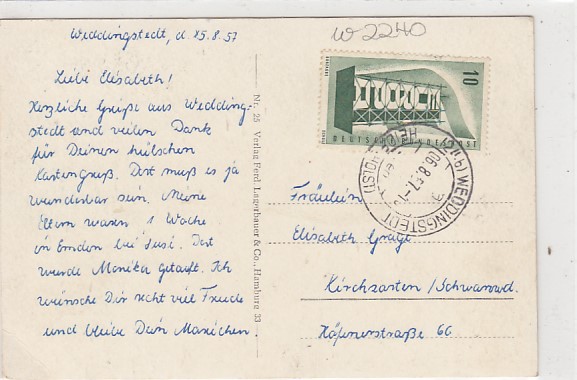 w2240
Weddingstedt, d. 15.8.57
Liebe Elisabeth!
Herzliche Grüße aus Wedding-
stedt und vielen Dank
für Deinen hübschen
Kartengruß. Dort muß es ja
wunderbar sein. Meine
Eltern waren 1 Woche
in Emden bei Susi. Dort
wurde Monika getauft. Ich
wünsche Dir recht viel Freude
und bleibe Dein Manichen.
Nr. 25 Verlag Ferd. Lagerbauer & Co., Hamburg 33
10
DEUTSCHE BUNDESPOST
WEDDINGSTEDT
Fräulein
Elisabeth
Kirchzarten / Schwarzwd.
Höfenerstraße 66